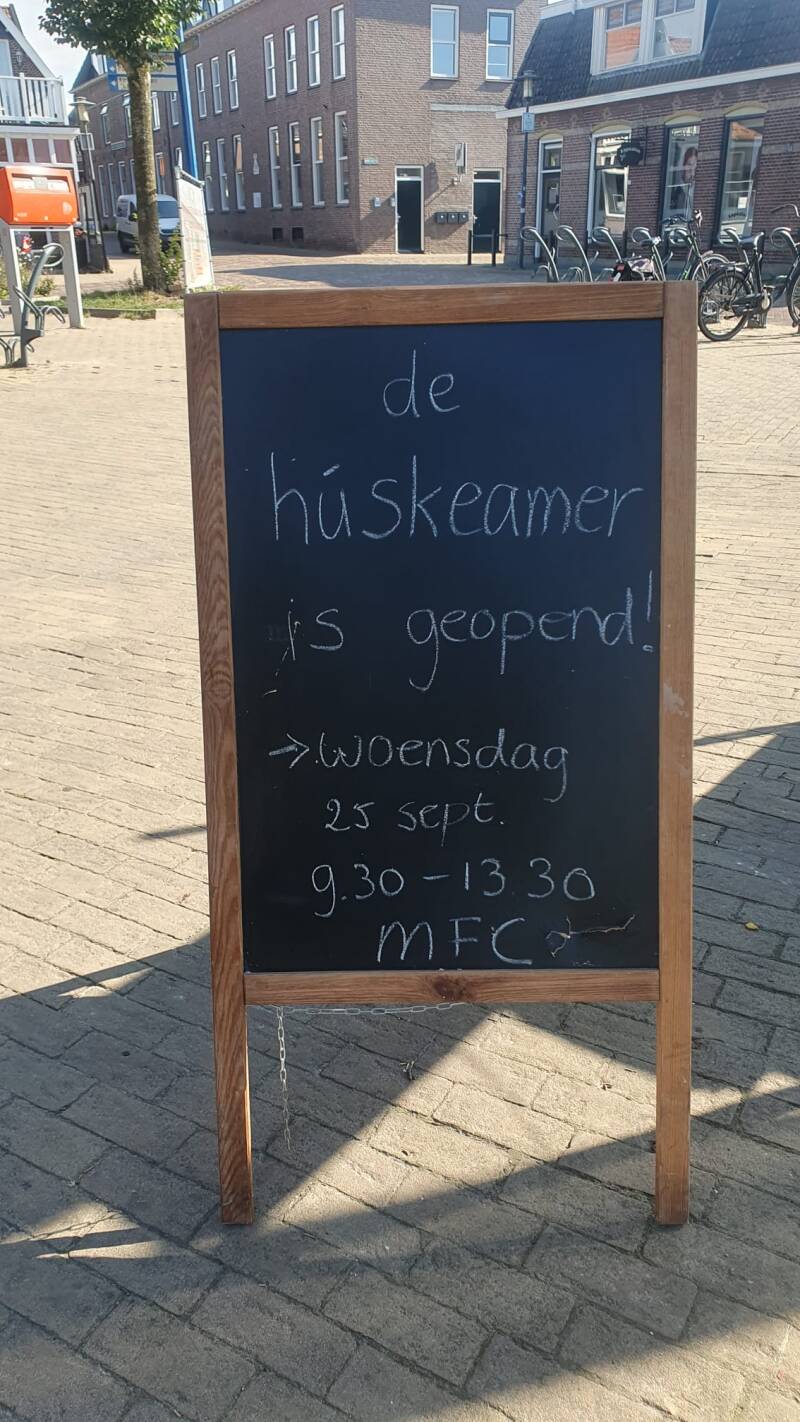 de
húskeamer
is geopend!
→ woensdag
25 sept.
9.30 - 13.30
MFC